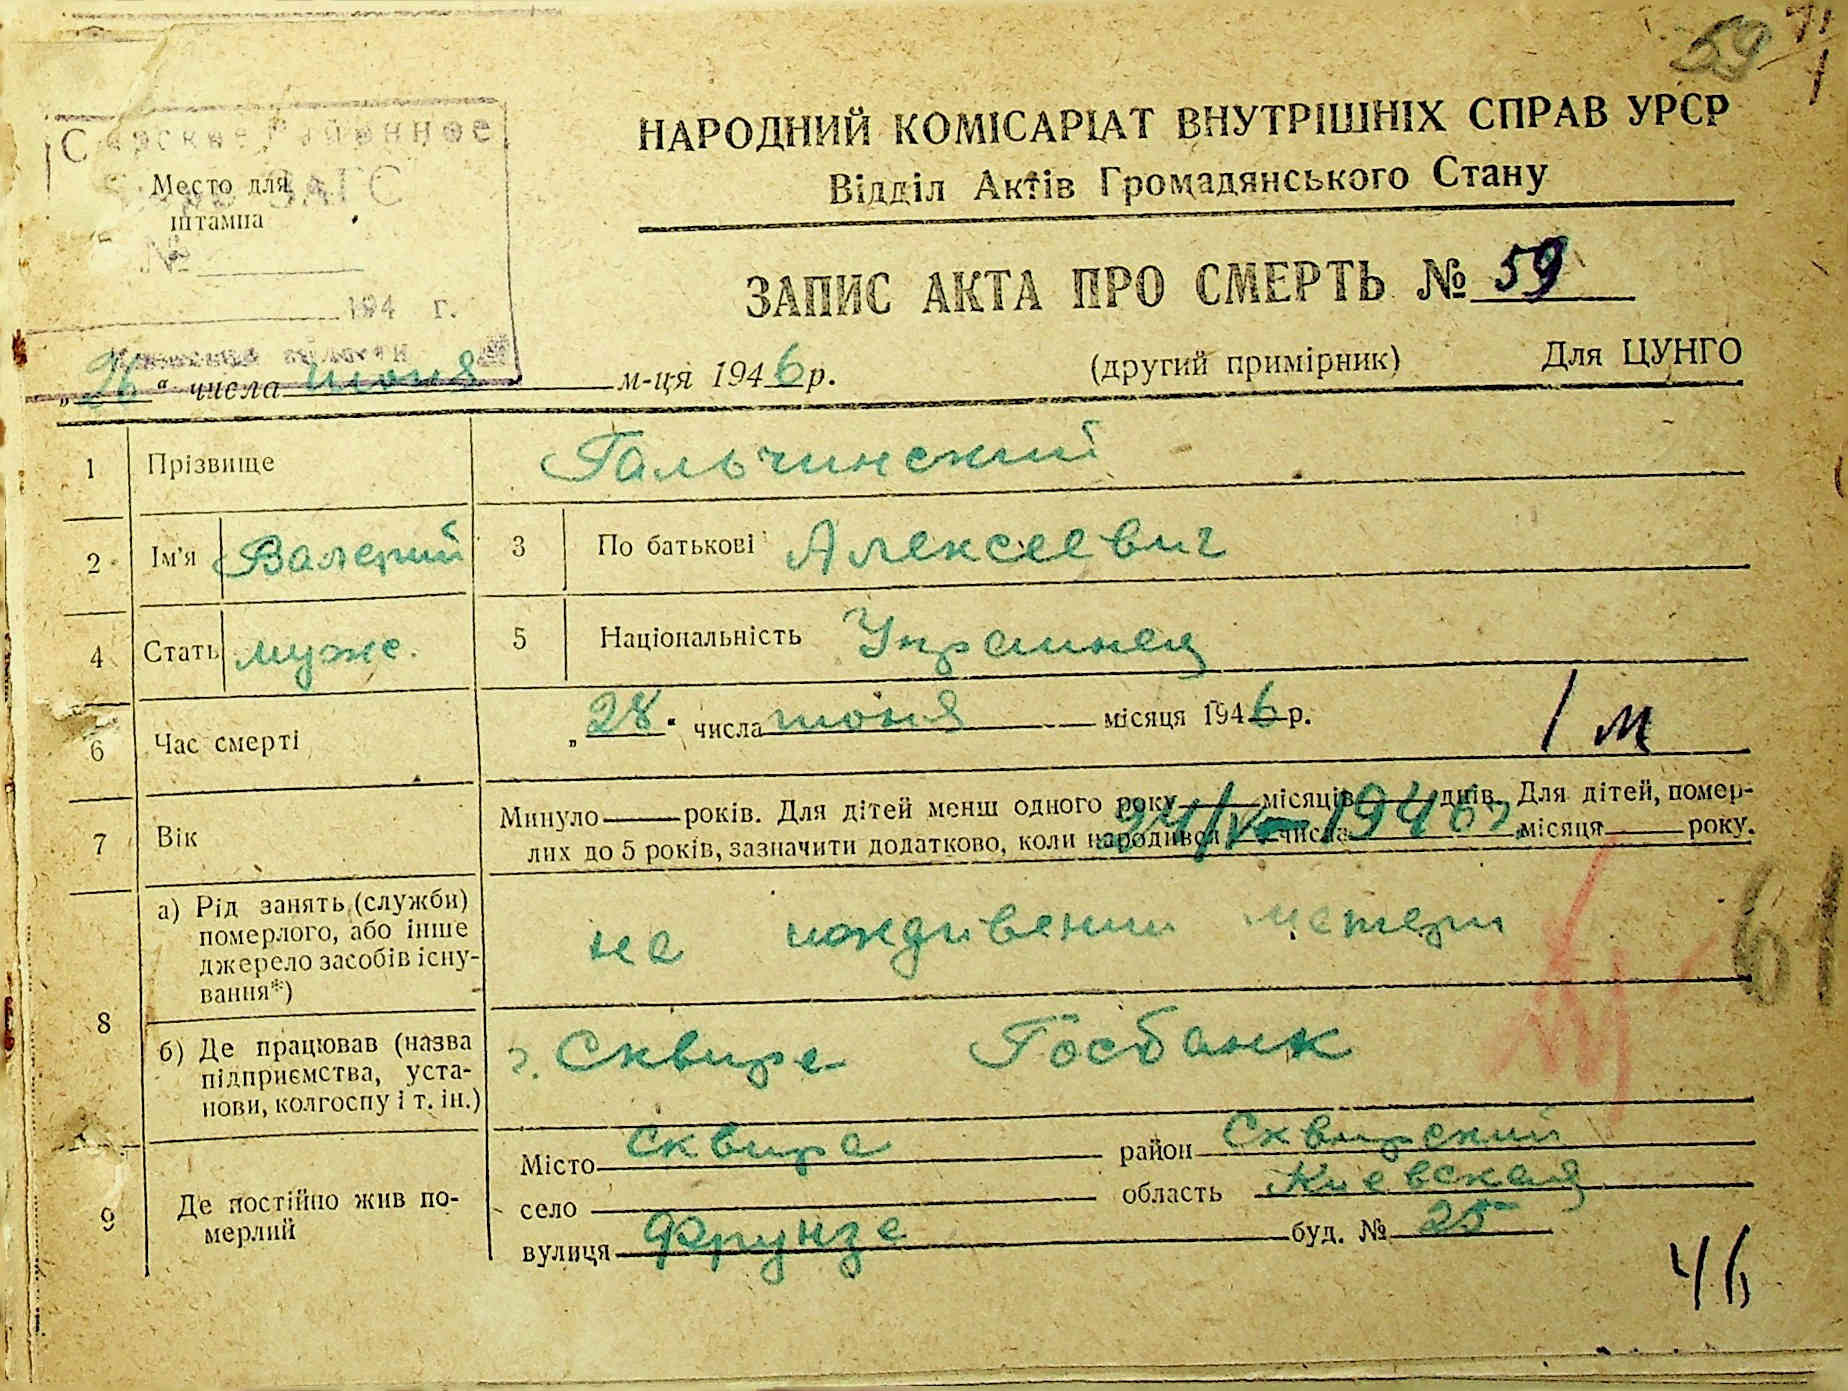 59
71
1
НАРОДНИЙ КОМІСАРІАТ ВНУТРІШНІХ СПРАВ УРСР
Відділ Актів Громадянського Стану
Районное
ЗАГС
Место для
штампа
№
194 г.
области
ЗАПИС АКТА ПРО СМЕРТЬ № 59
„26“ числа июня м-ця 1946 р.
(другий примірник)
Для ЦУНГО
1 Прізвище Гальчинский
2 Ім'я Валерий 3 По батькові Алексеевич
4 Стать муж. 5 Національність Украинец
6 Час смерті „28“ числа июня місяця 1946 р.
1 м
7 Вік Минуло року років. Для дітей менш одного року місяців днів. Для дітей, помер-
лих до 5 років, зазначити додатково, коли народився 24/V 1946 числа місяця року.
8 а) Рід занять (служби)
померлого, або інше
джерело засобів існу-
вання*)
на иждивении матери
б) Де працював (назва
підприємства, уста-
нови, колгоспу і т. ін.)
г. Сквира Госбанк
61
9 Де постійно жив по-
мерлий
Місто Сквира район Сквирский
село область Киевская
вулиця Фрунзе буд. № 25
46